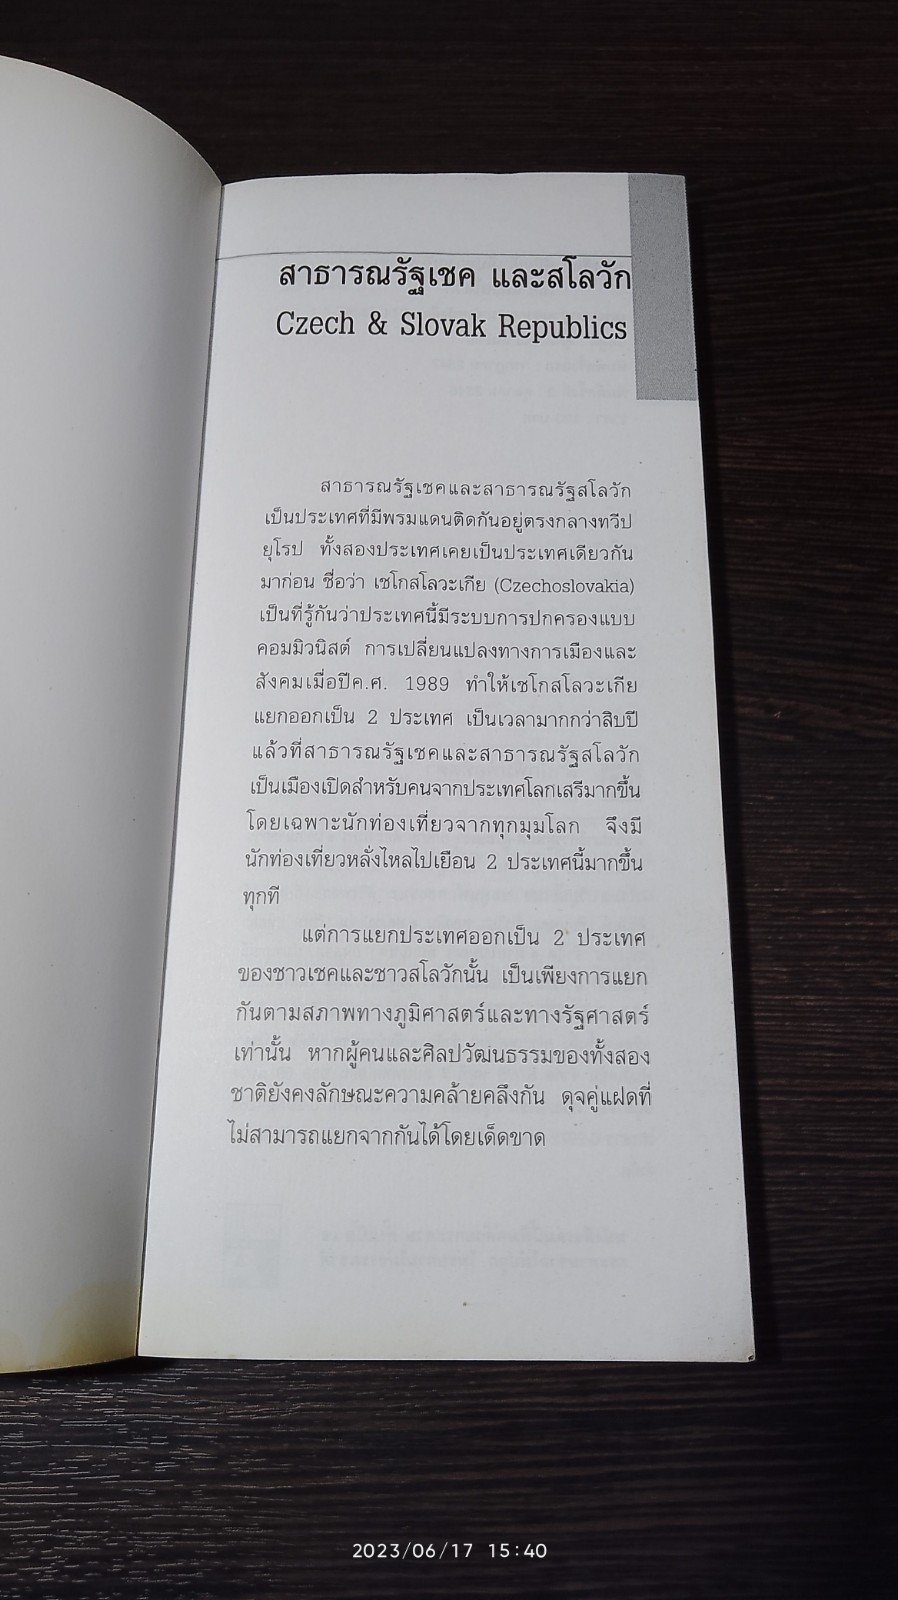 สาธารณรัฐเชค และสโลวัก
Czech & Slovak Republics
สาธารณรัฐเชคและสาธารณรัฐสโลวัก
เป็นประเทศที่มีพรมแดนติดกันอยู่ตรงกลางทวีป
ยุโรป ทั้งสองประเทศเคยเป็นประเทศเดียวกัน
มาก่อน ชื่อว่า เชโกสโลวะเกีย (Czechoslovakia)
เป็นที่รู้กันว่าประเทศนี้มีระบบการปกครองแบบ
คอมมิวนิสต์ การเปลี่ยนแปลงทางการเมืองและ
สังคมเมื่อปีค.ศ. 1989 ทำให้เชโกสโลวะเกีย
แยกออกเป็น 2 ประเทศ เป็นเวลามากกว่าสิบปี
แล้วที่สาธารณรัฐเชคและสาธารณรัฐสโลวัก
เป็นเมืองเปิดสำหรับคนจากประเทศโลกเสรีมากขึ้น
โดยเฉพาะนักท่องเที่ยวจากทุกมุมโลก จึงมี
นักท่องเที่ยวหลั่งไหลไปเยือน 2 ประเทศนี้มากขึ้น
ทุกที
แต่การแยกประเทศออกเป็น 2 ประเทศ
ของชาวเชคและชาวสโลวักนั้น เป็นเพียงการแยก
กันตามสภาพทางภูมิศาสตร์และทางรัฐศาสตร์
เท่านั้น หากผู้คนและศิลปวัฒนธรรมของทั้งสอง
ชาติยังคงลักษณะความคล้ายคลึงกัน ดุจคู่แฝดที่
ไม่สามารถแยกจากกันได้โดยเด็ดขาด
2023/06/17 15:40